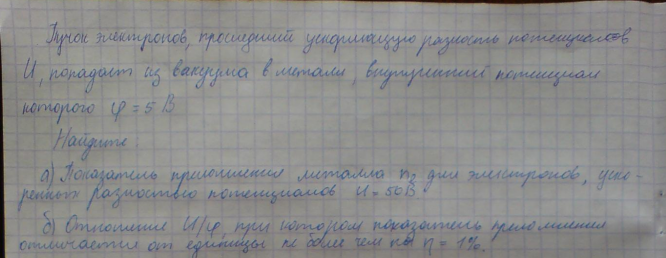 Пучок электронов, прошедший ускоряющую разность потенциалов
U, попадает из вакуума в металл, внутренний потенциал
которого φ = 5 В
Найдите:
а) Показатель преломления металла n₂ для электронов, уско-
ренных разностью потенциалов U = 50В
б) Отношение U/φ, при котором показатель преломления
отличается от единицы не более чем на η = 1%.